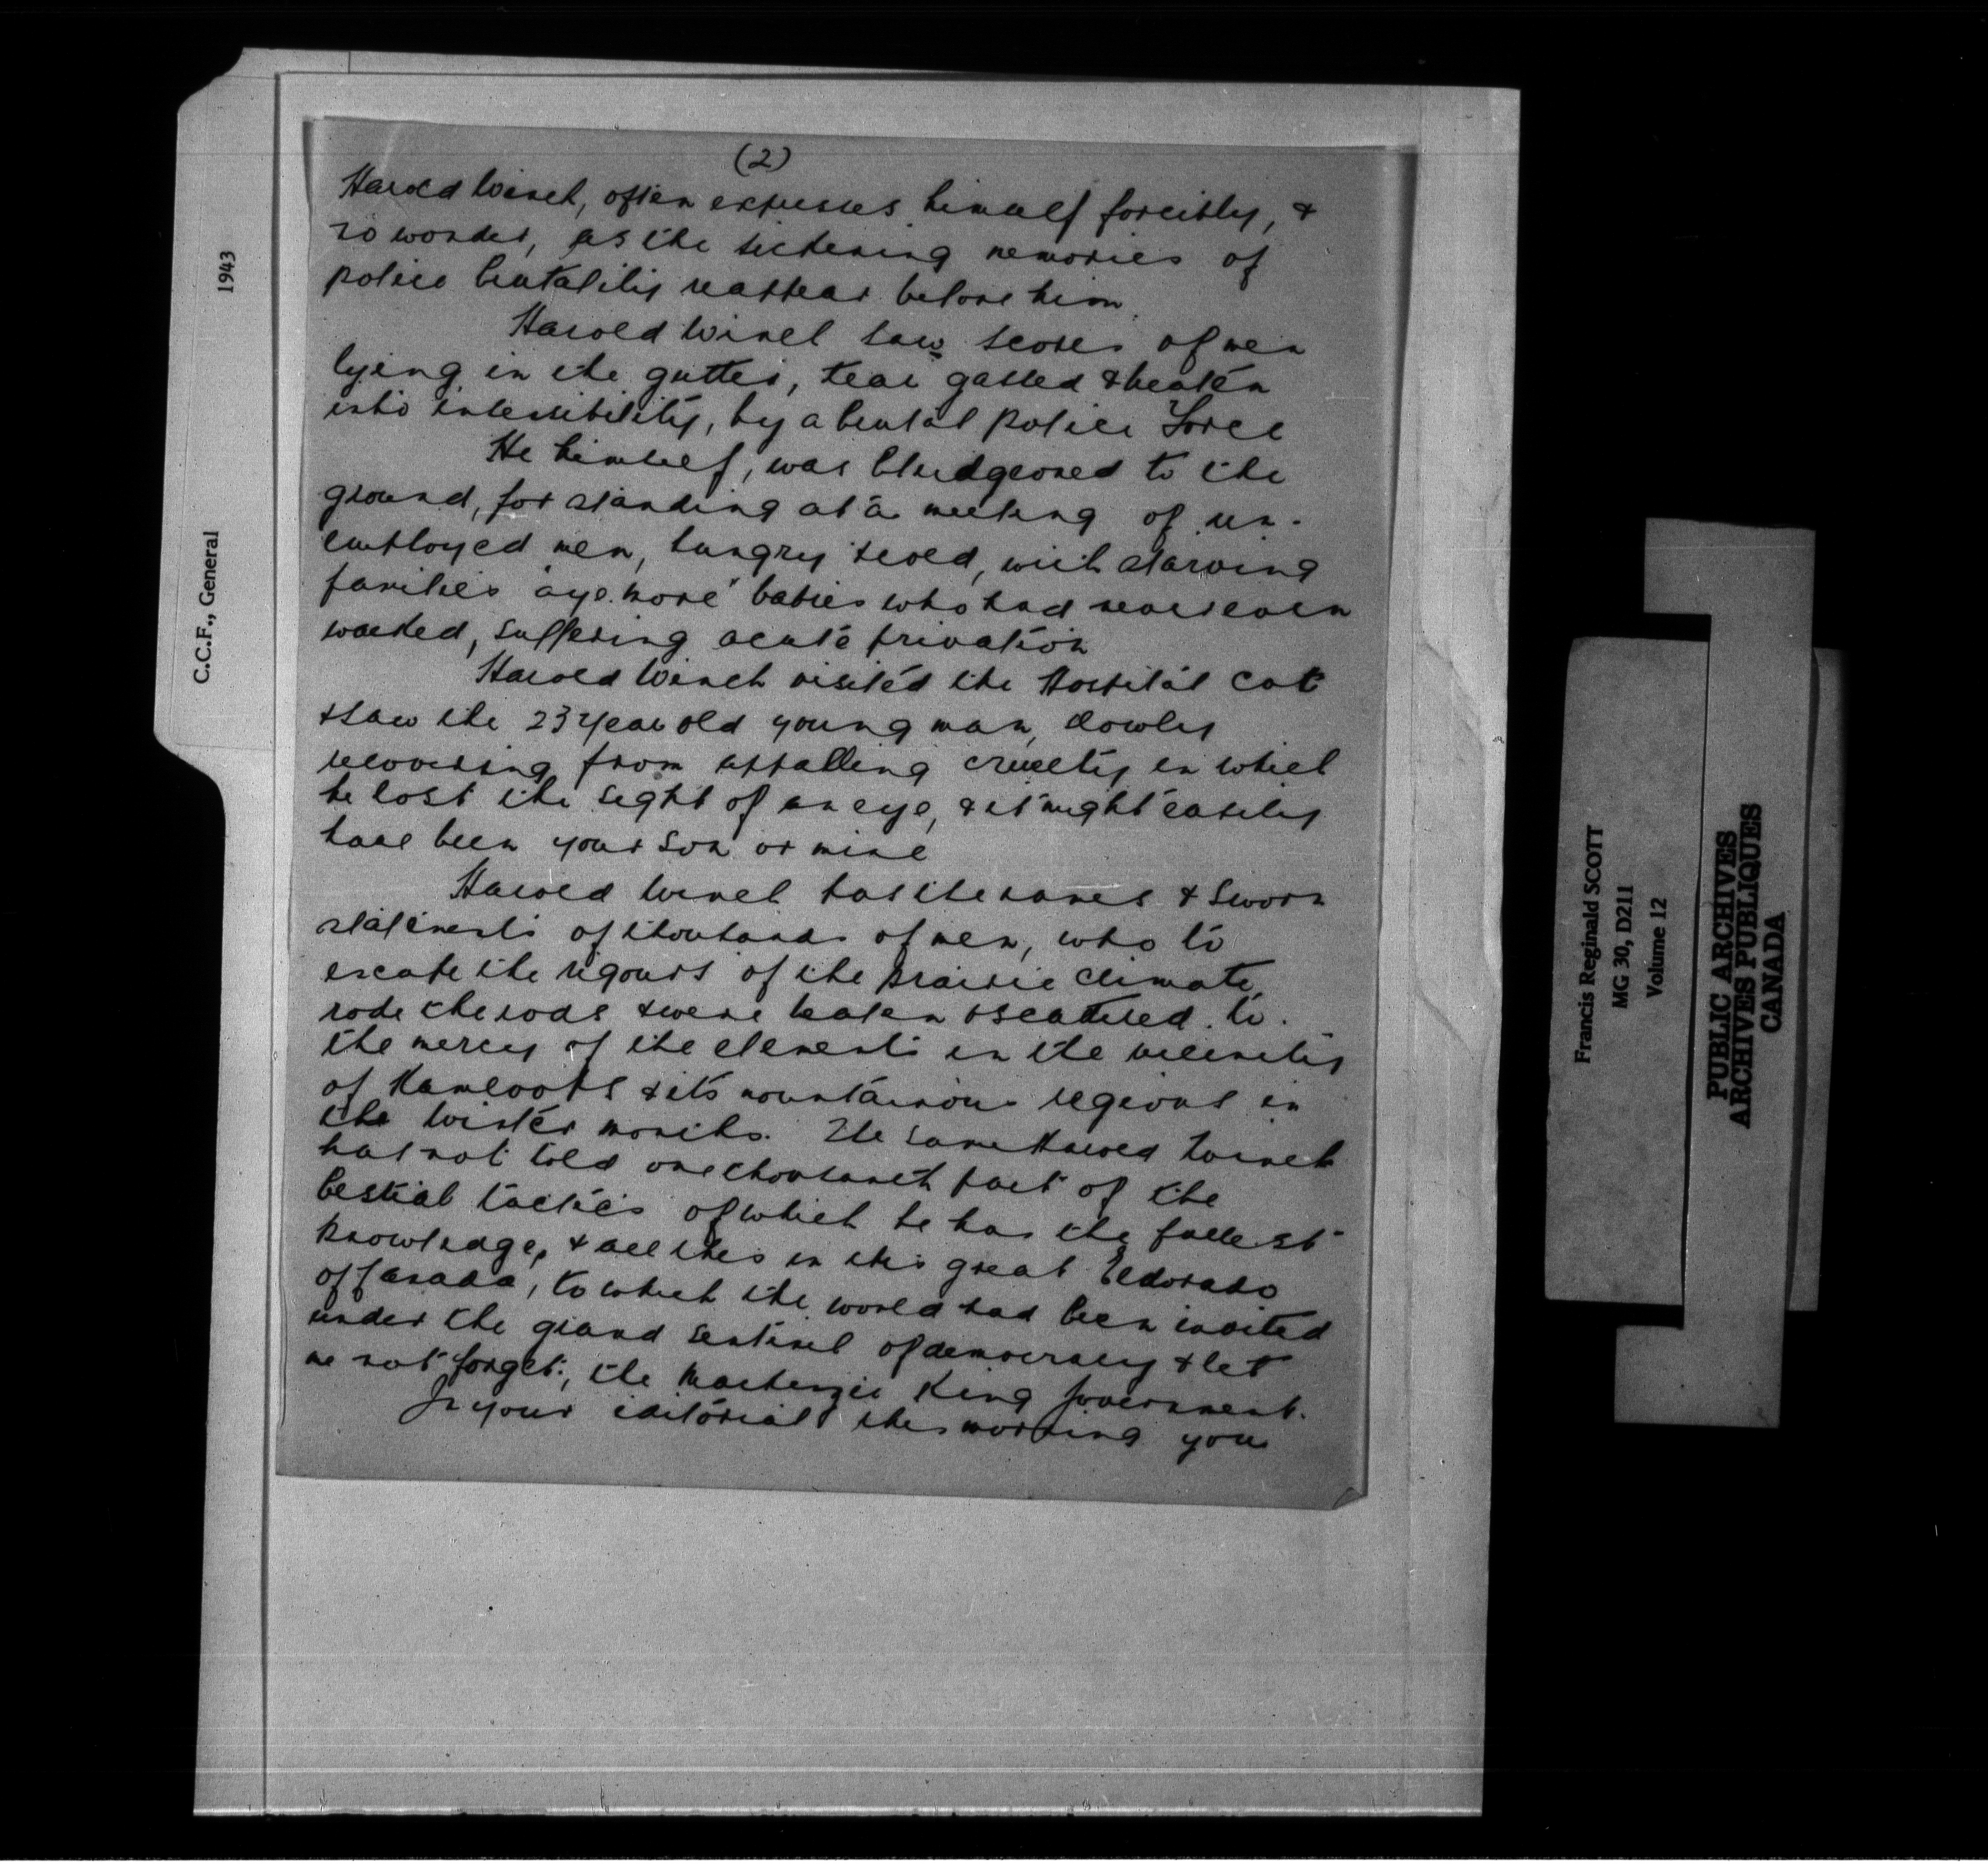 (2)
Harold Winch, often expresses himself forcibly, &
no wonder, as the sickening memories of
police brutality reappear before him.
Harold Winch saw scores of men
lying in the gutter, tear gassed & beaten
into insensibility, by a brutal police Force
He himself, was bludgeoned to the
ground, for standing at a meeting of un-
employed men, hungry & cold, with starving
families "aye more" babies who had never even
walked, suffering acute privation
Harold Winch visited the Hospital Cot
& saw the 23 year old young man, slowly
recovering from appalling cruelty in which
he lost the sight of an eye, & it might easily
have been your son or mine
Harold Winch has the names & sworn
statements of thousands of men, who to
escape the rigours of the prairie climate,
rode the rods & were beaten & scattered to
the mercy of the elements in the vicinity
of Kamloops & its mountainous regions in
the winter months. The same Harold Winch
has not told one thousanth part of the
bestial tactics of which he has the fullest
knowledge, & all this in this great Eldorado
of Canada, to which the world had been invited
under the grand sentinel of democracy & let
me not forget:, the Mackenzie King Government.
In your editorial this morning you
1943
C.C.F., General
Francis Reginald SCOTT
MG 30, D211
Volume 12
PUBLIC ARCHIVES
ARCHIVES PUBLIQUES
CANADA